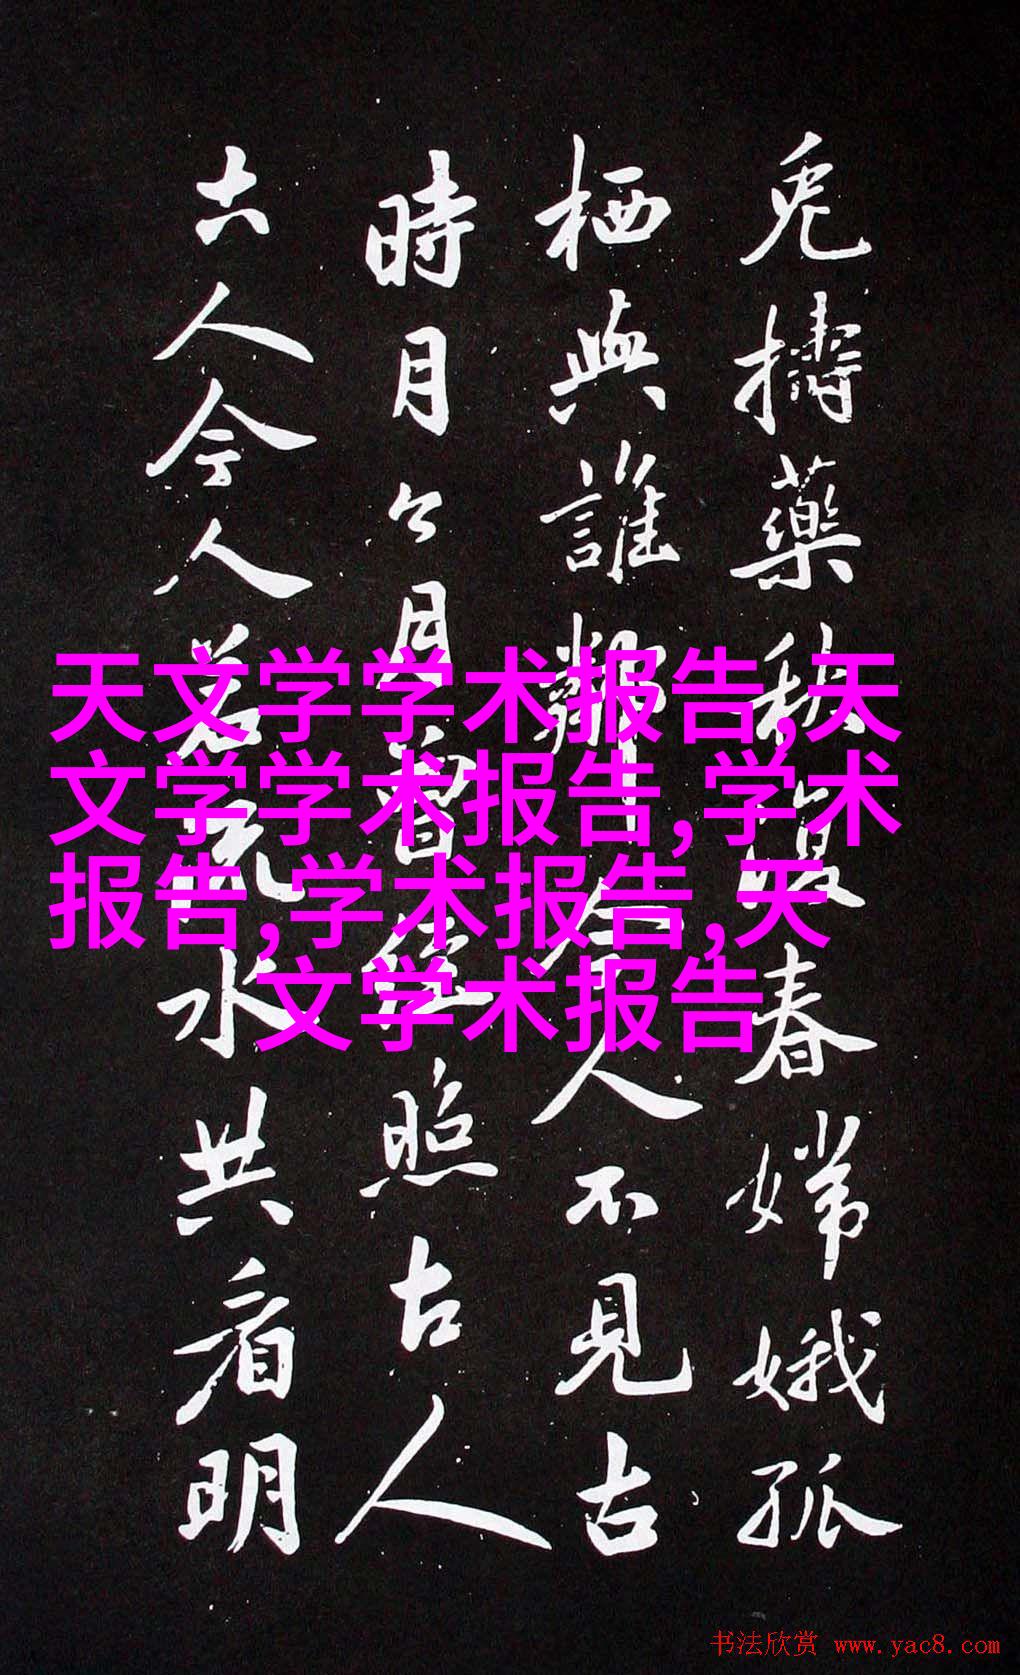 兔擣藥秋復春嫦娥孤
栖與誰鄰今人不見古
時月今月曾經照古人
古人今人若流水共看明
天文学学术报告,天
文学学术报告,学术
报告,学术报告,天
文学术报告
书法欣赏 www.yac8.com